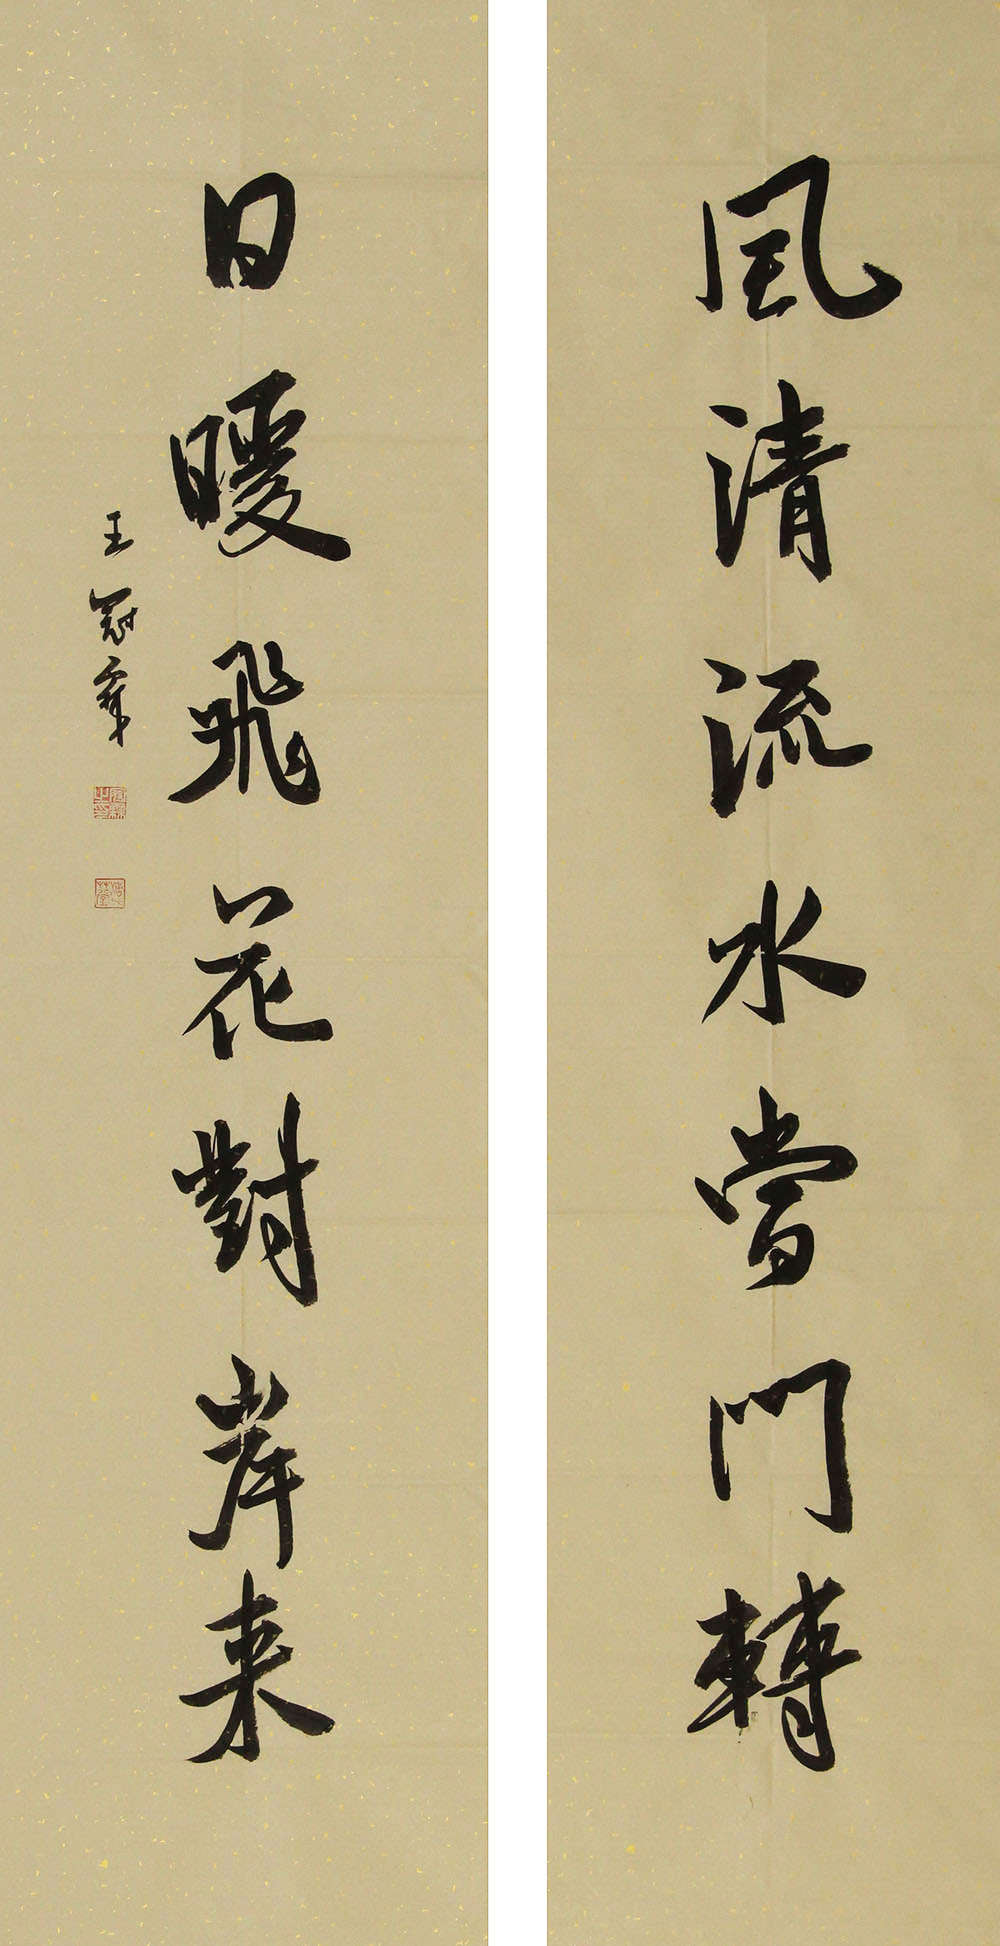 風清流水當門轉
日暖飛花對岸来
王冠軍